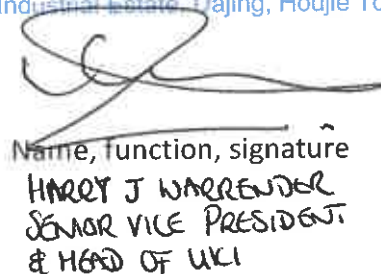 Industrial Estate, Dajing, Houjie To
Name, function, signature
HARRY J WARRENDER
SENIOR VICE PRESIDENT
& HEAD OF UKI